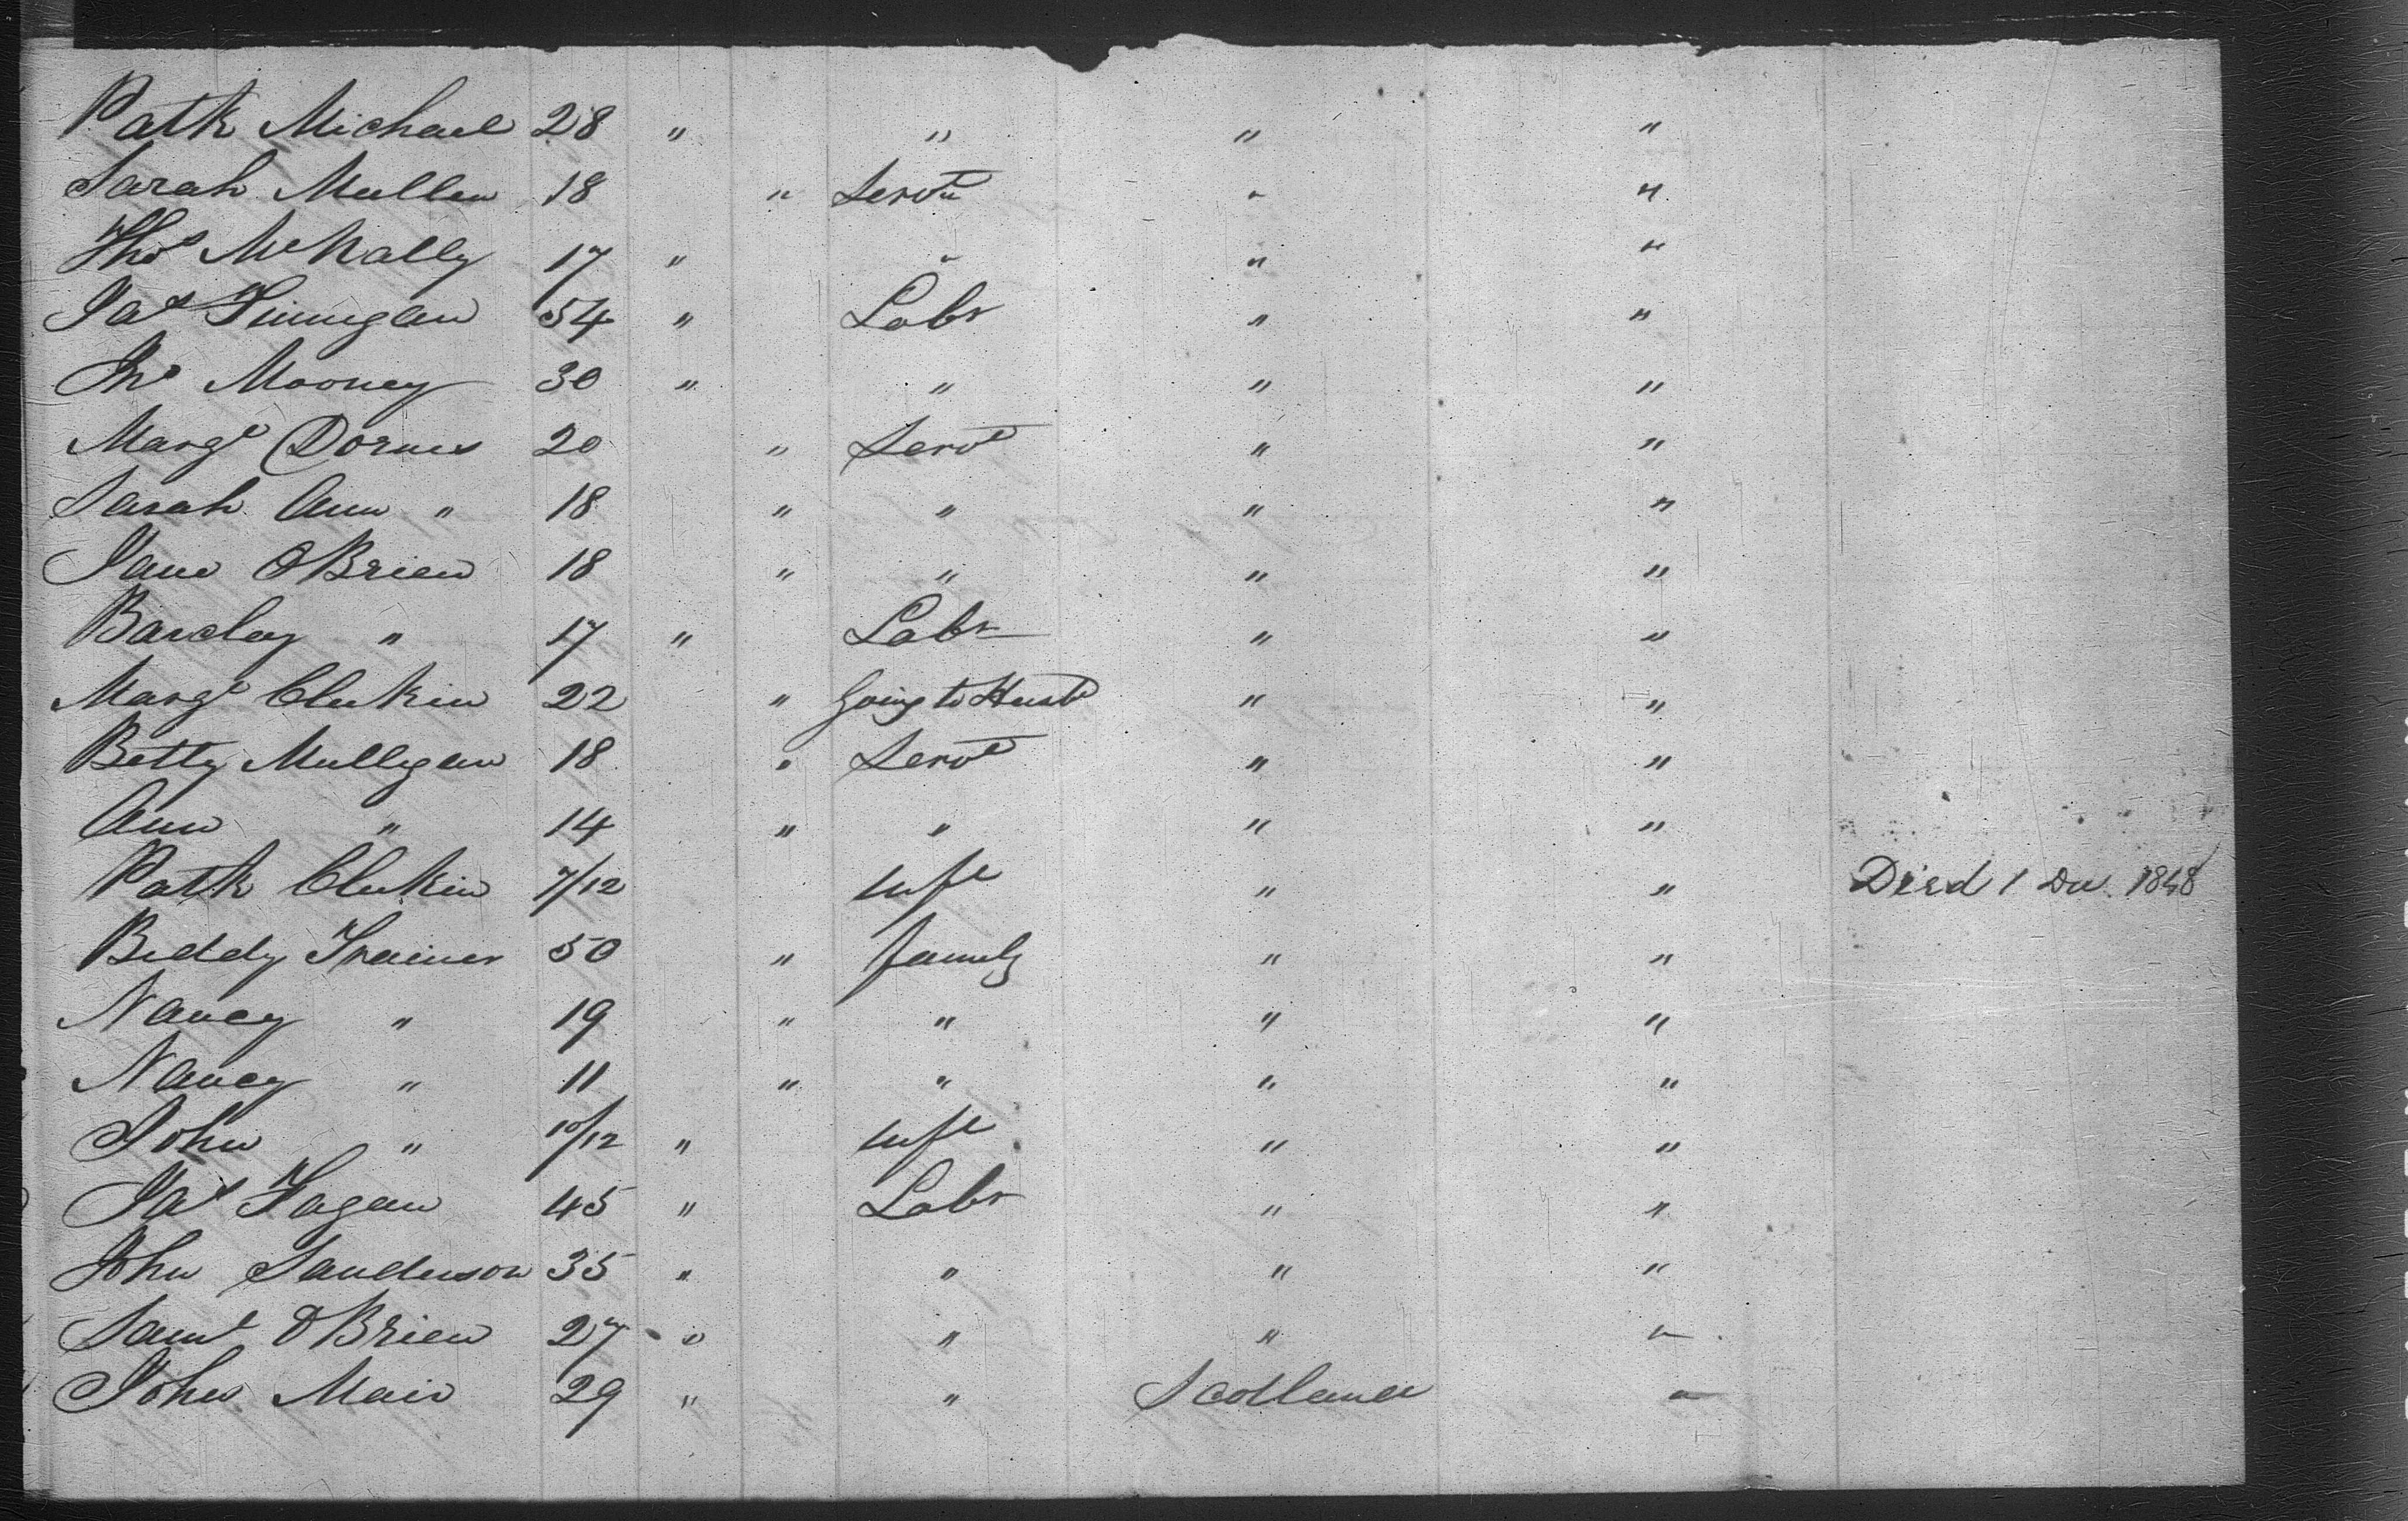 Patk Michael 28 " " " "
Sarah Mullen 18 " Servt " "
Thos McNally 17 " " " "
Jas Finnigan 54 " Labr " "
Jno Mooney 30 " " " "
Margt Dornes 20 " Servt " "
Sarah Ann " 18 " " " "
Jane O'Brien 18 " " " "
Barclay " 17 " Labr " "
Margt Clukin 22 " Going to Husbd " "
Betty Mulligan 18 " Servt " "
Ann " 14 " " " "
Patk Clukin 7/12 Inft " " Died 1 Dec. 1848
Biddy Trainer 50 " family " "
Nancy " 19 " " " "
Nancy " 11 " " " "
John " 10/12 " Inft " "
Jas Fagan 45 " Labr " "
John Sanderson 35 " " " "
Saml O'Brien 27 " " " "
John Mair 29 " " Scotland "